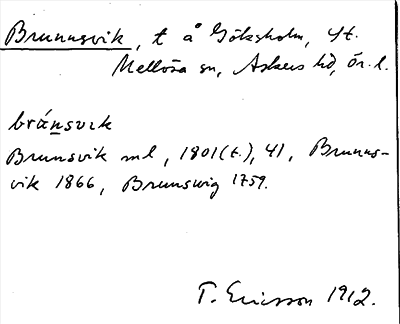 Brunnsvik, t å Göksholm, St.
Mellösa sn, Askers hd, Ör. l.
bránsvık
Brunsvik ml, 1801(t.), 41, Brunns-
vik 1866, Brunswig 1759.
T. Ericsson 1912.